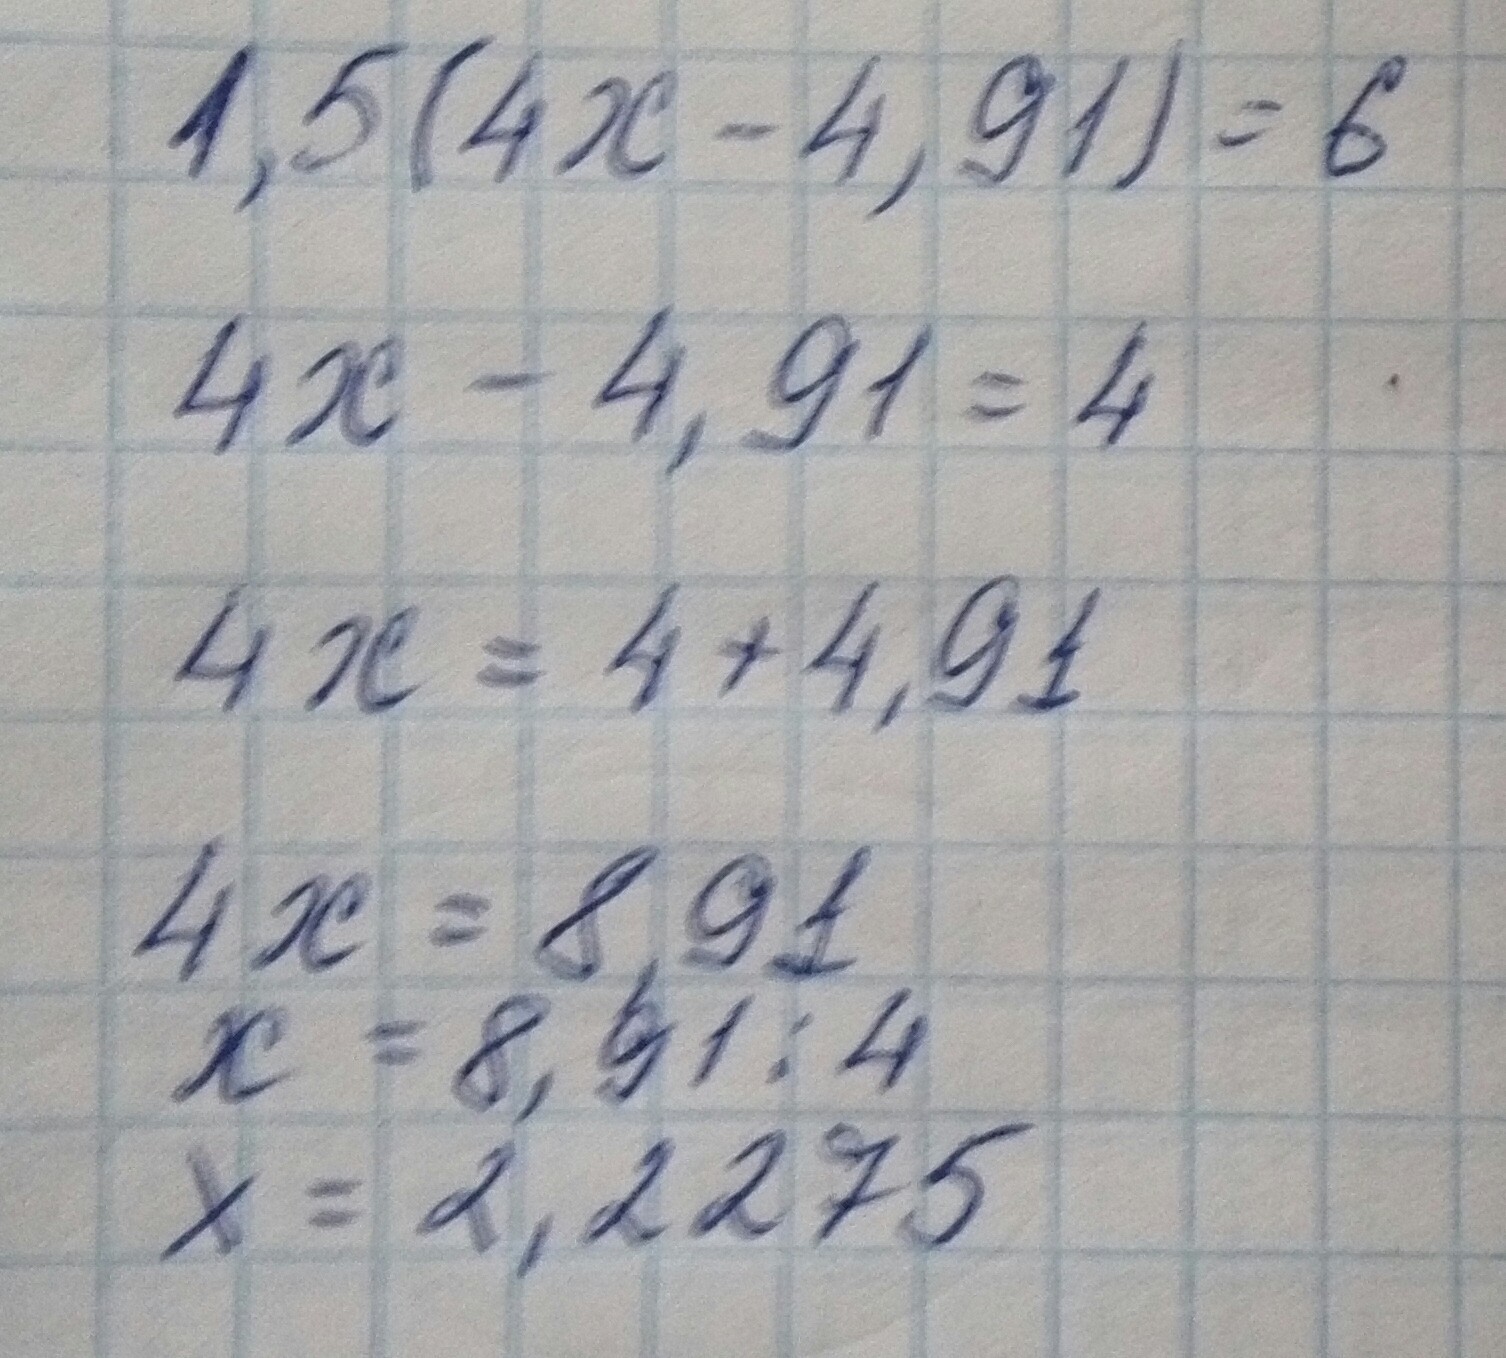 1,5(4x - 4,91) = 6
4x - 4,91 = 4
4x = 4 + 4,91
4x = 8,91
x = 8,91 : 4
x = 2,2275